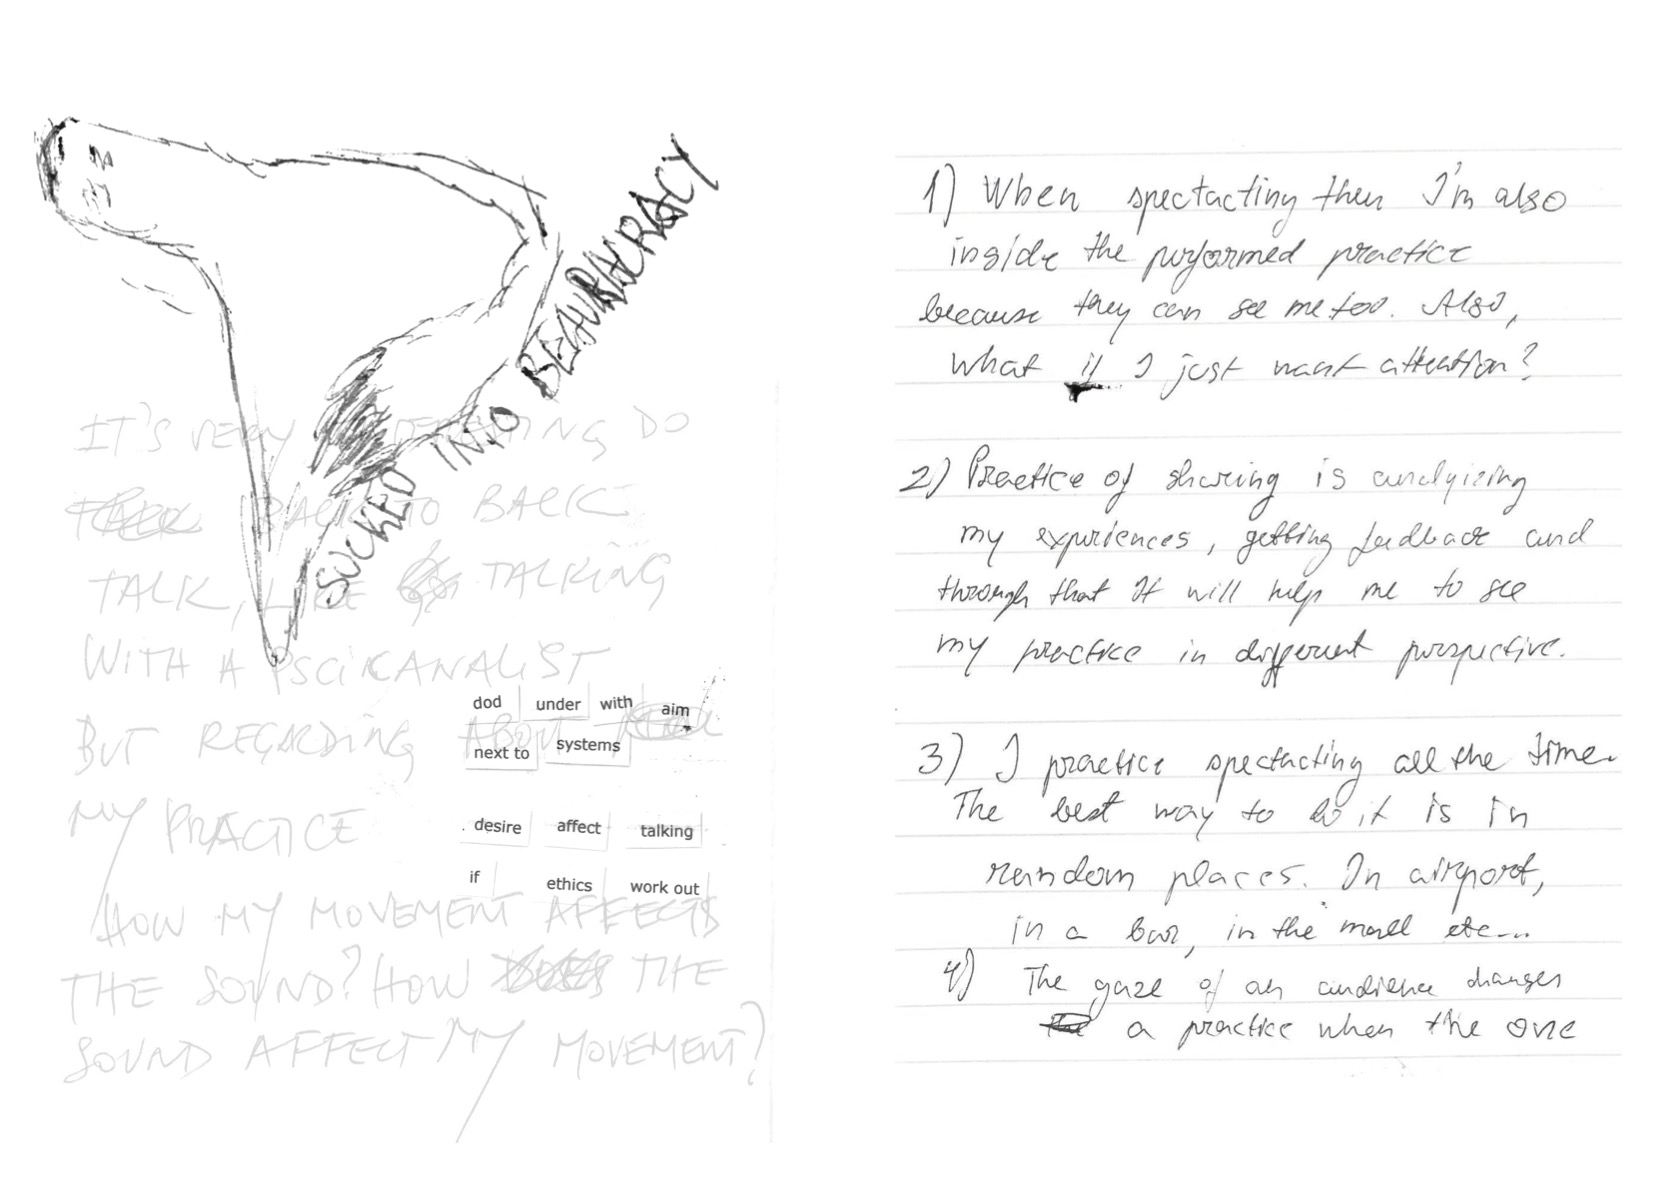 SUCKED INTO BEAURACRACY
IT'S VERY INTERESTING DO
BACK TO BACK
TALK, LIKE TALKING
WITH A PSCIKANALIST
BUT REGARDING ABOUT
MY PRACTICE
HOW MY MOVEMENT AFFECTS
THE SOUND? HOW THE
SOUND AFFECT MY MOVEMENT?
dod under with aim
next to systems
desire affect talking
if ethics work out
1) When spectacting then I'm also
inside the performed practice
because they can see me too. Also,
what if I just want attention?
2) Practice of sharing is analyizing
my experiences, getting feedback and
through that It will help me to see
my practice in different perspective.
3) I practice spectacting all the time.
The best way to do it is in
random places. In airport,
in a bar, in the mall etc...
4) The gaze of an audience changes
a practice when the one